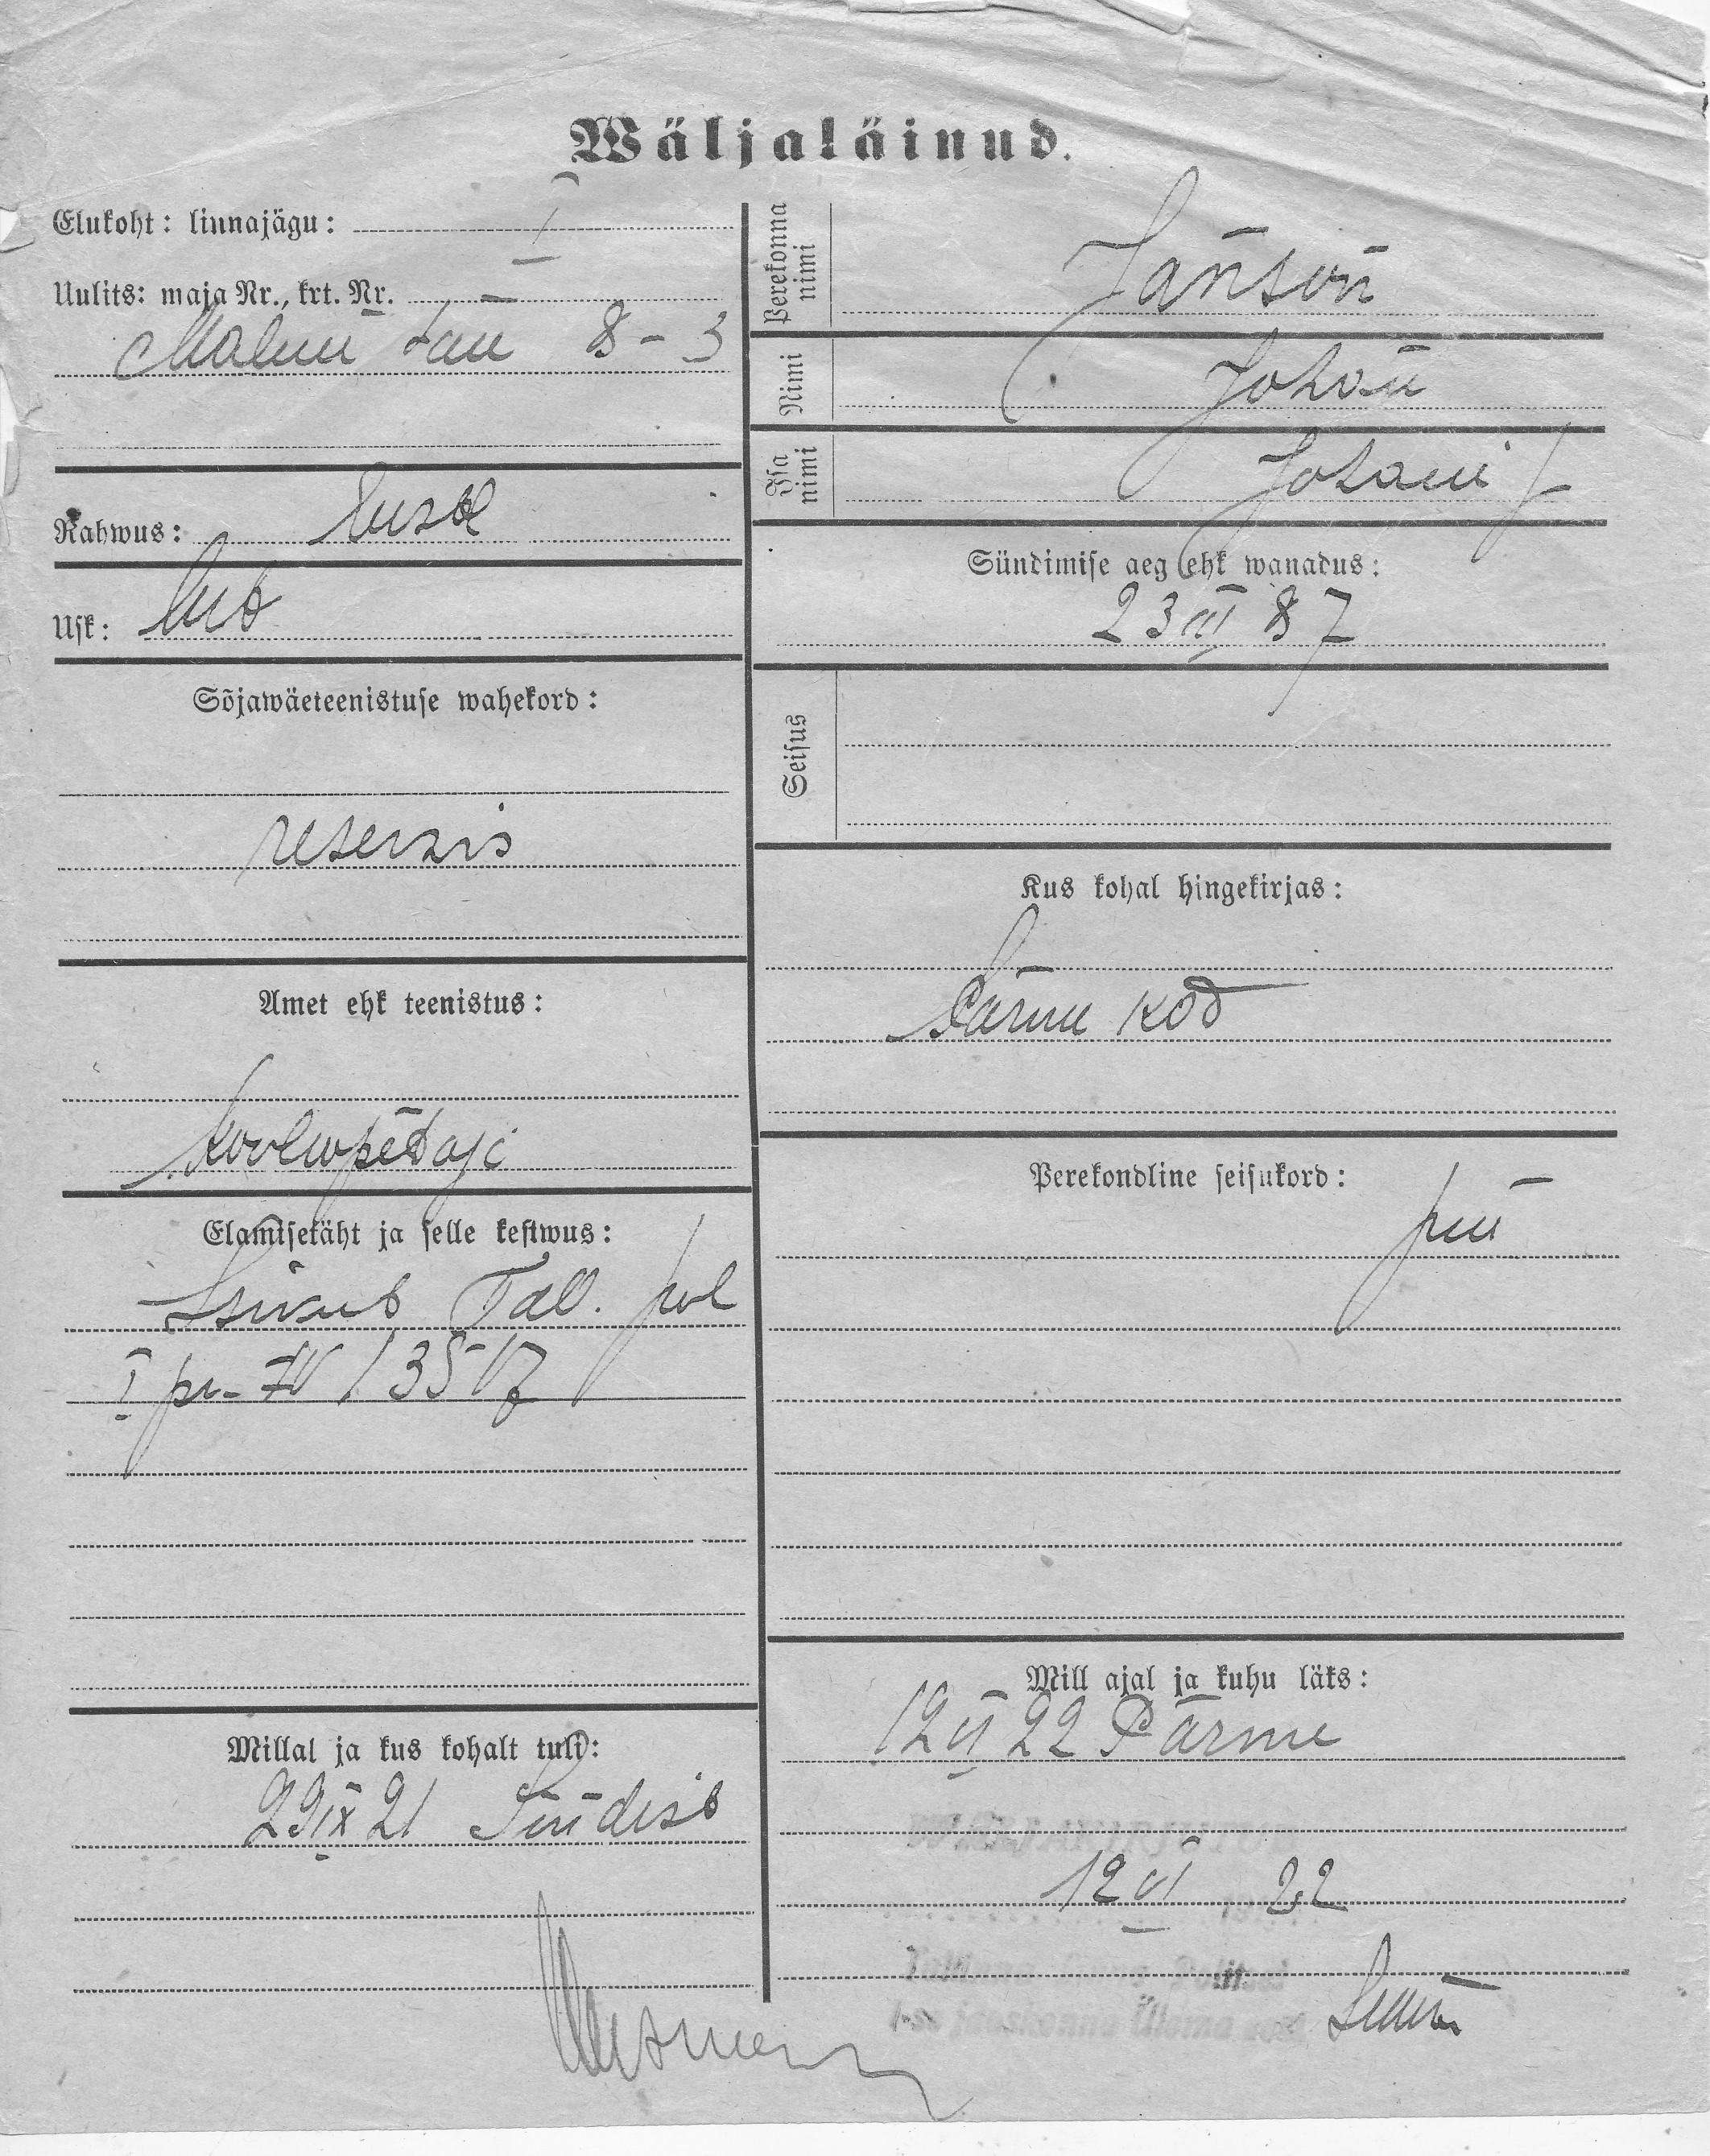 Wäljaläinud.
Elukoht: linnajägu: I
Uulits: maja Nr., krt. Nr.
8 - 3
Rahwus: Eesti
Usk: Lut
Sõjawäeteenistuse wahekord:
reservis
Amet ehk teenistus:
Kooliõpetaja
Elamisetäht ja selle kestwus:
Isikut Tall. pol
I pr. IV / 3517
Millal ja kus kohalt tuli:
29 IX 21 Sindist
Perekonna nimi
Janson
Nimi
Johan
Isa nimi
Johani
Sündimise aeg ehk wanadus:
23 III 87
Seisus
Kus kohal hingekirjas:
Pärnu kod
Perekondline seisukord:
Mill ajal ja kuhu läks:
12 VI 22 Pärnu
12 VI 22
Tallinna Linna Politsei
I-se jaoskonna Ülema